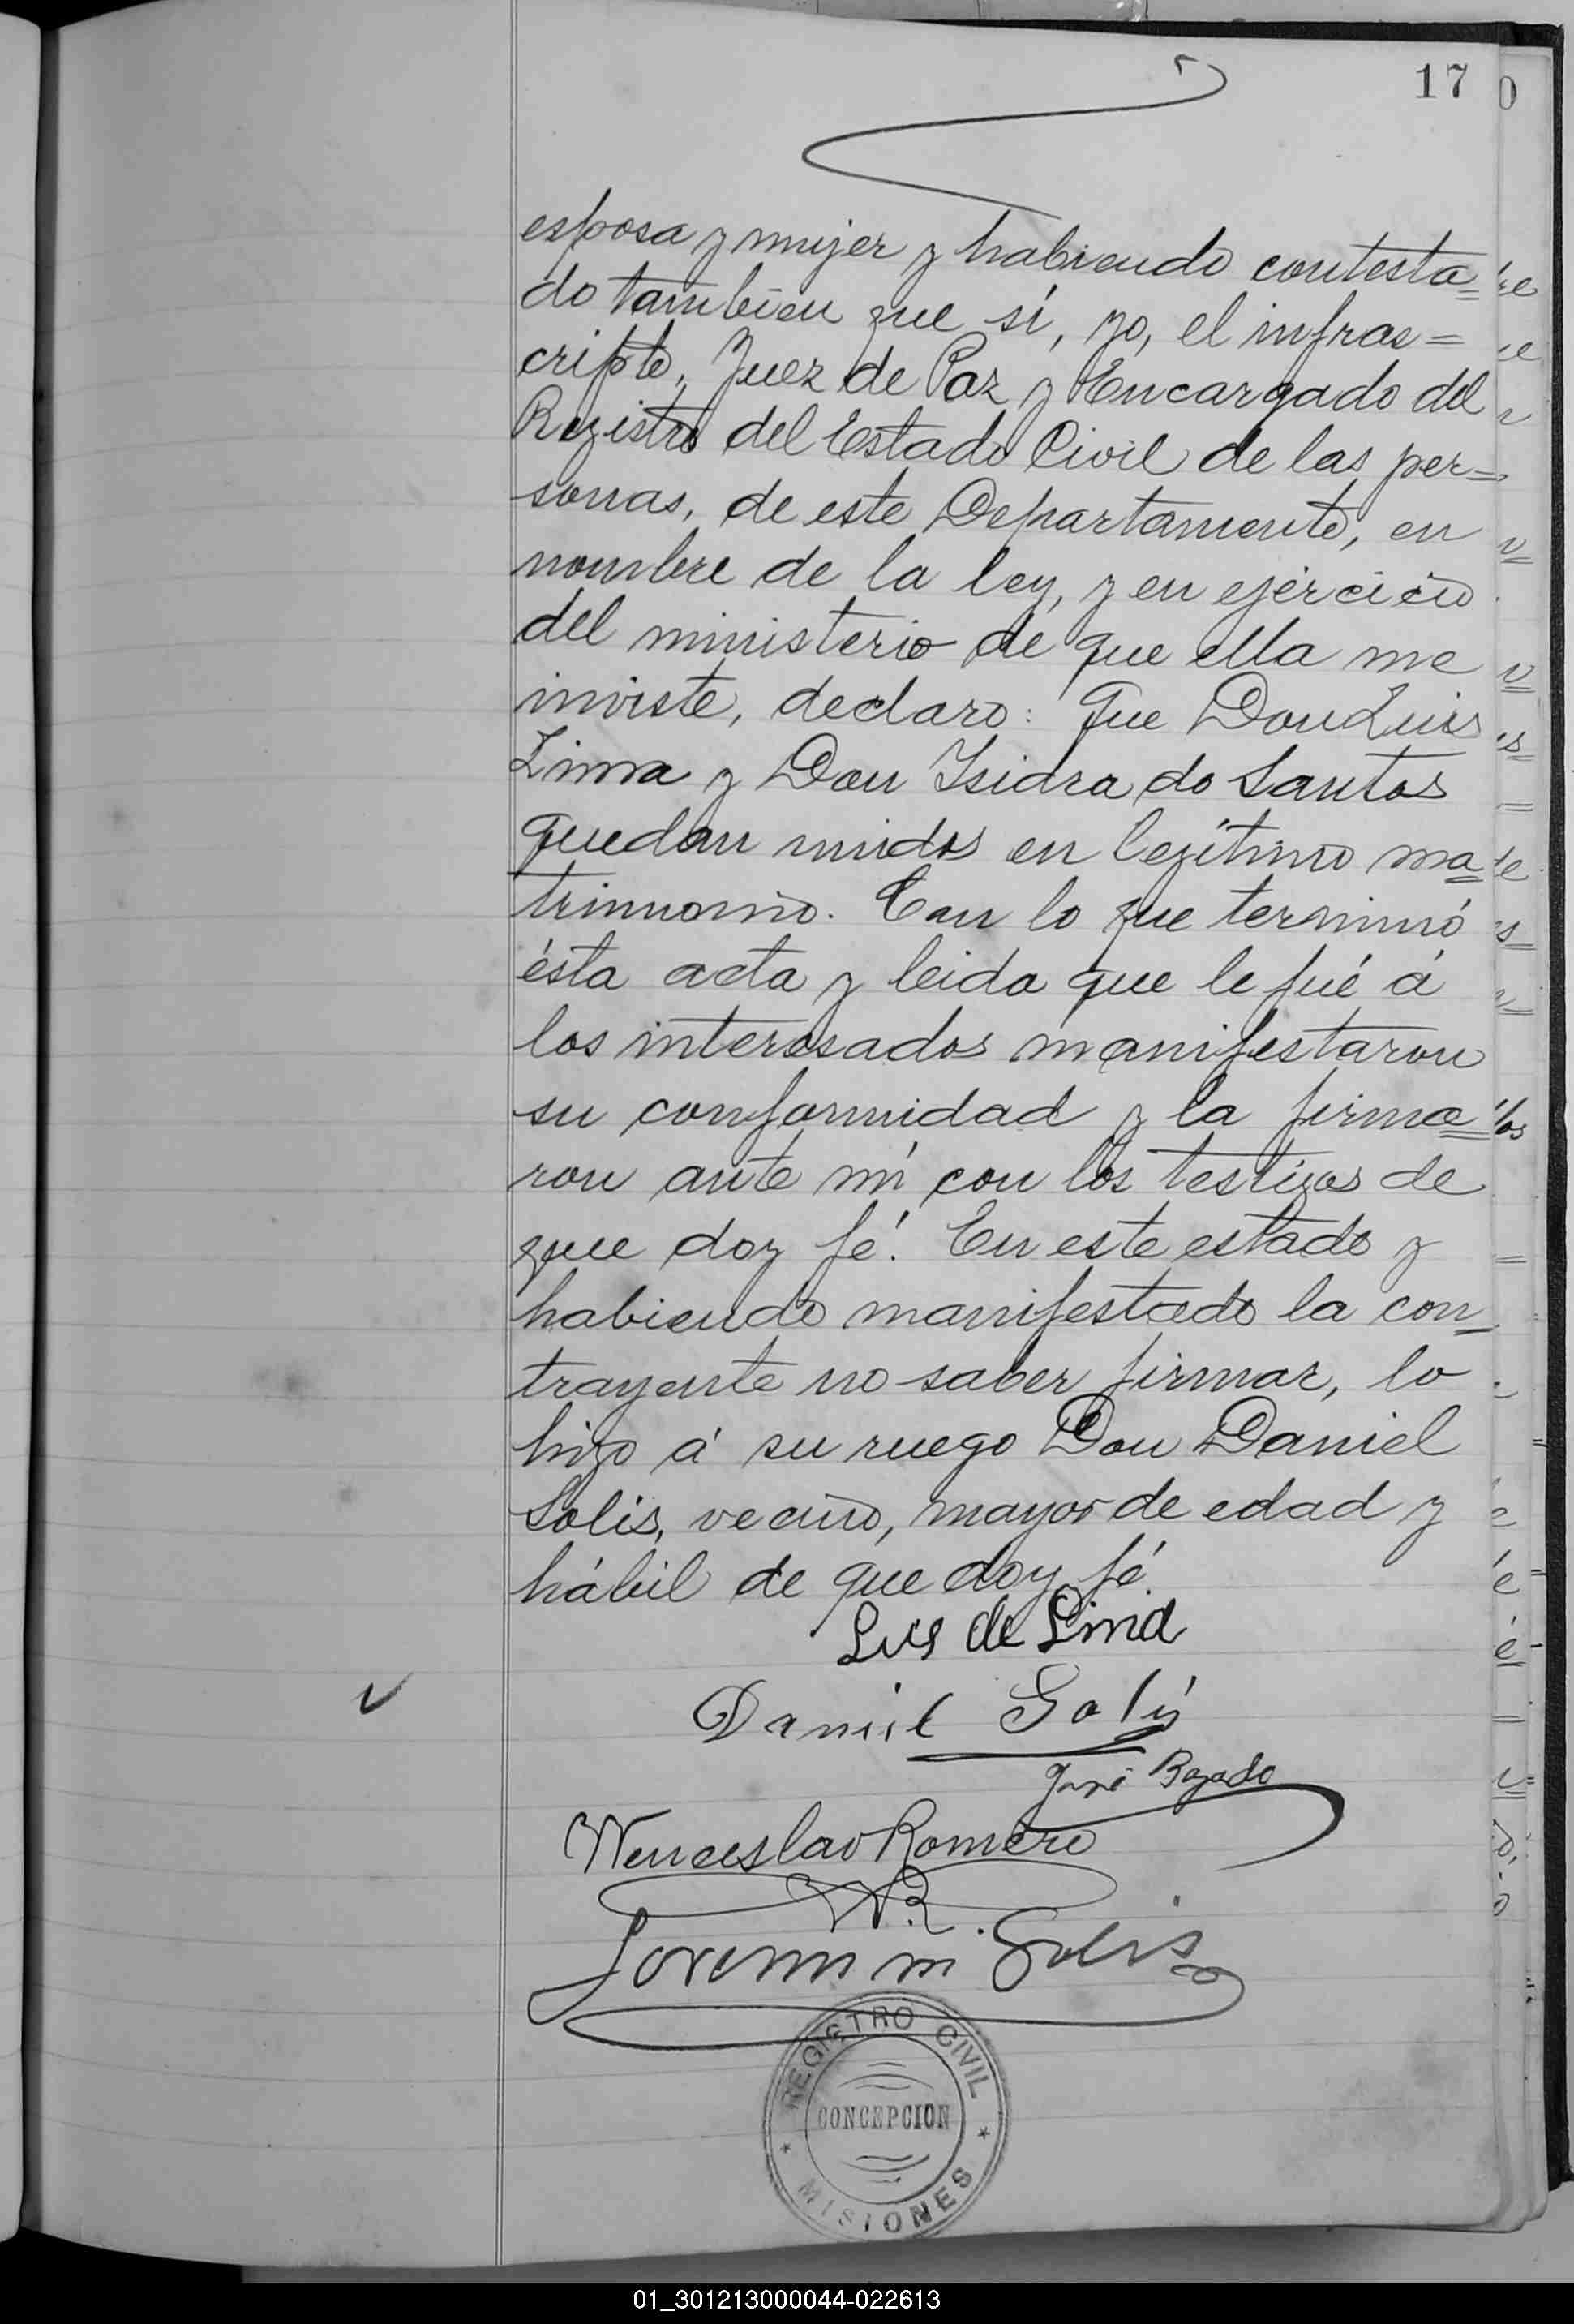 17
esposa y mujer y habiendo contesta=
do tambien que sí, yo, el infras=
cripto, Juez de Paz y Encargado del
Registro del Estado Civil de las per=
sonas, de este Departamento, en
nombre de la ley, y en ejercicio
del ministerio de que ella me
inviste, declaro: Que Don Luis
Lima y Don Isidra do Santos
quedan unidos en legítimo ma=
trimonio. Con lo que terminó
ésta acta y leida que le fué á
los interesados manifestaron
su conformidad y la firma=
ron ante mí con los testigos de
que doy fé. En este estado y
habiendo manifestado la con=
trayente no saber firmar, lo
hizo á su ruego Don Daniel
Solis, vecino, mayor de edad y
hábil de que doy fé.
Luis de Lima
Daniel Solis
José
Wenceslao Romero
WR.
Solis
REGISTRO CIVIL
CONCEPCION
MISIONES
01_301213000044-022613